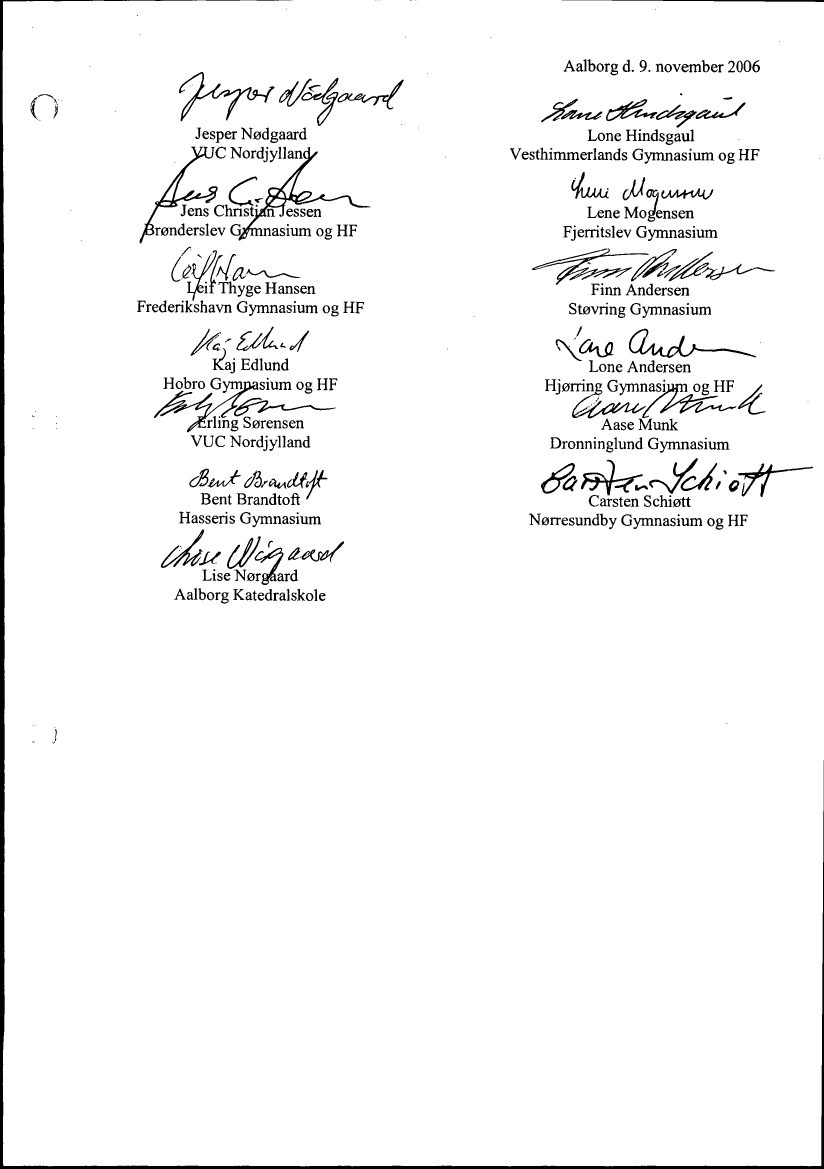 Aalborg d. 9. november 2006
Jesper Nødgaard
Jesper Nødgaard
VUC Nordjylland
Jens Christian Jessen
Brønderslev Gymnasium og HF
Leif Thyge Hansen
Frederikshavn Gymnasium og HF
Kaj Edlund
Kaj Edlund
Hobro Gymnasium og HF
Erling Sørensen
VUC Nordjylland
Bent Brandtoft
Bent Brandtoft
Hasseris Gymnasium
Lise Nørgaard
Aalborg Katedralskole
Lone Hindsgaul
Lone Hindsgaul
Vesthimmerlands Gymnasium og HF
Lene Mogensen
Lene Mogensen
Fjerritslev Gymnasium
Finn Andersen
Finn Andersen
Støvring Gymnasium
Lone Andersen
Hjørring Gymnasium og HF
Aase Munk
Aase Munk
Dronninglund Gymnasium
Carsten Schiøtt
Carsten Schiøtt
Nørresundby Gymnasium og HF